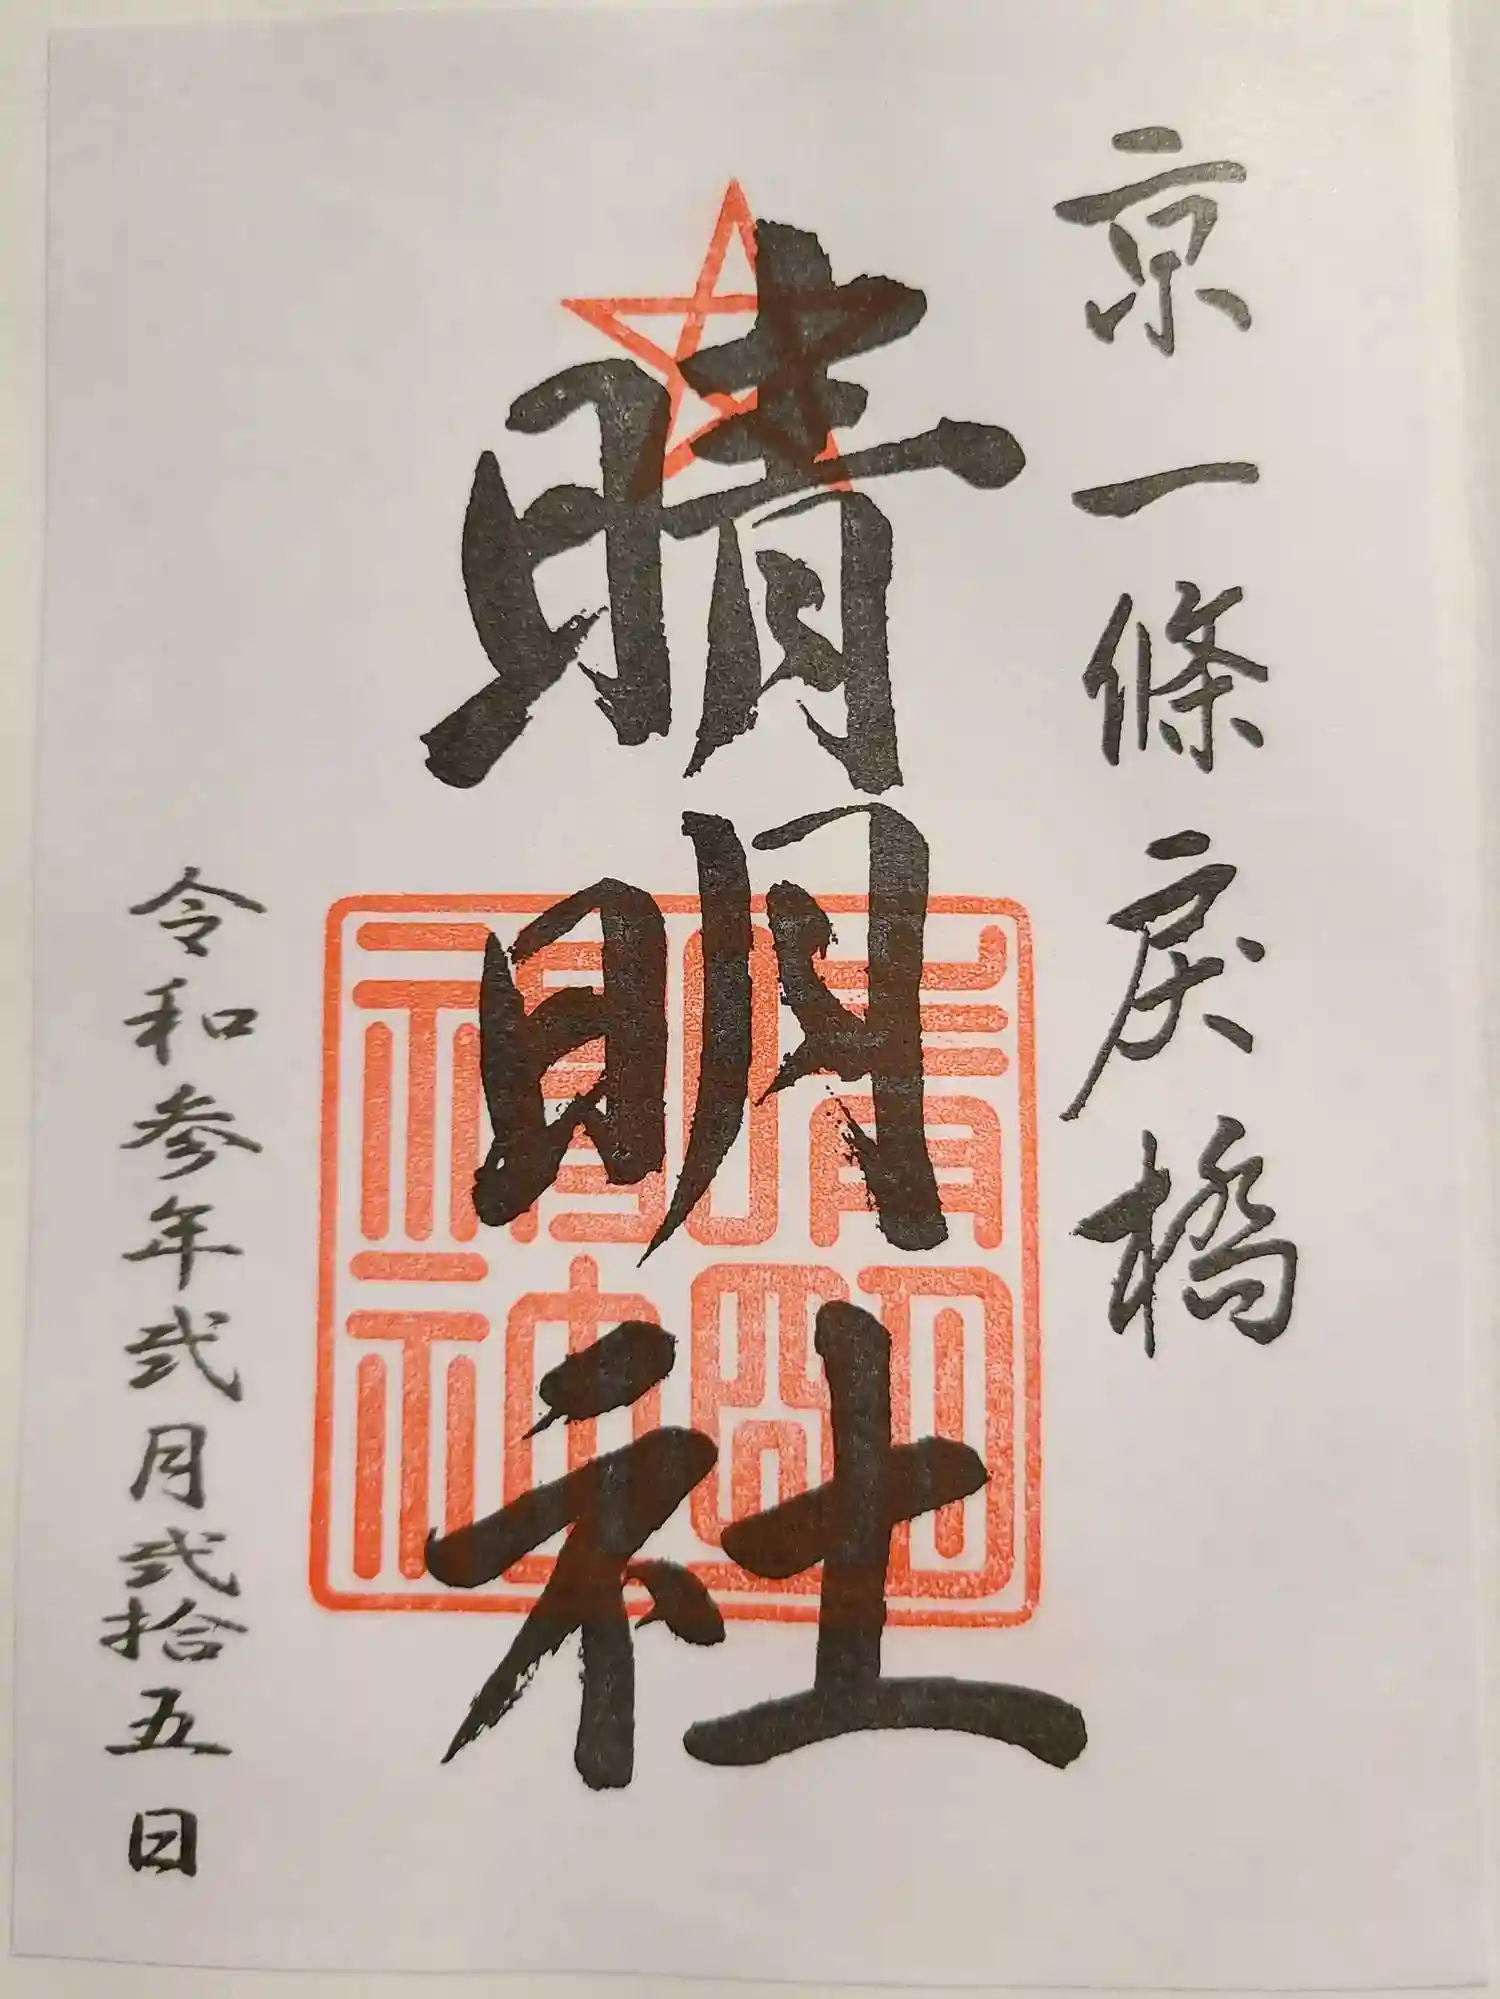 京一條戻橋
晴明社
晴明神社
令和参年弐月弐拾五日